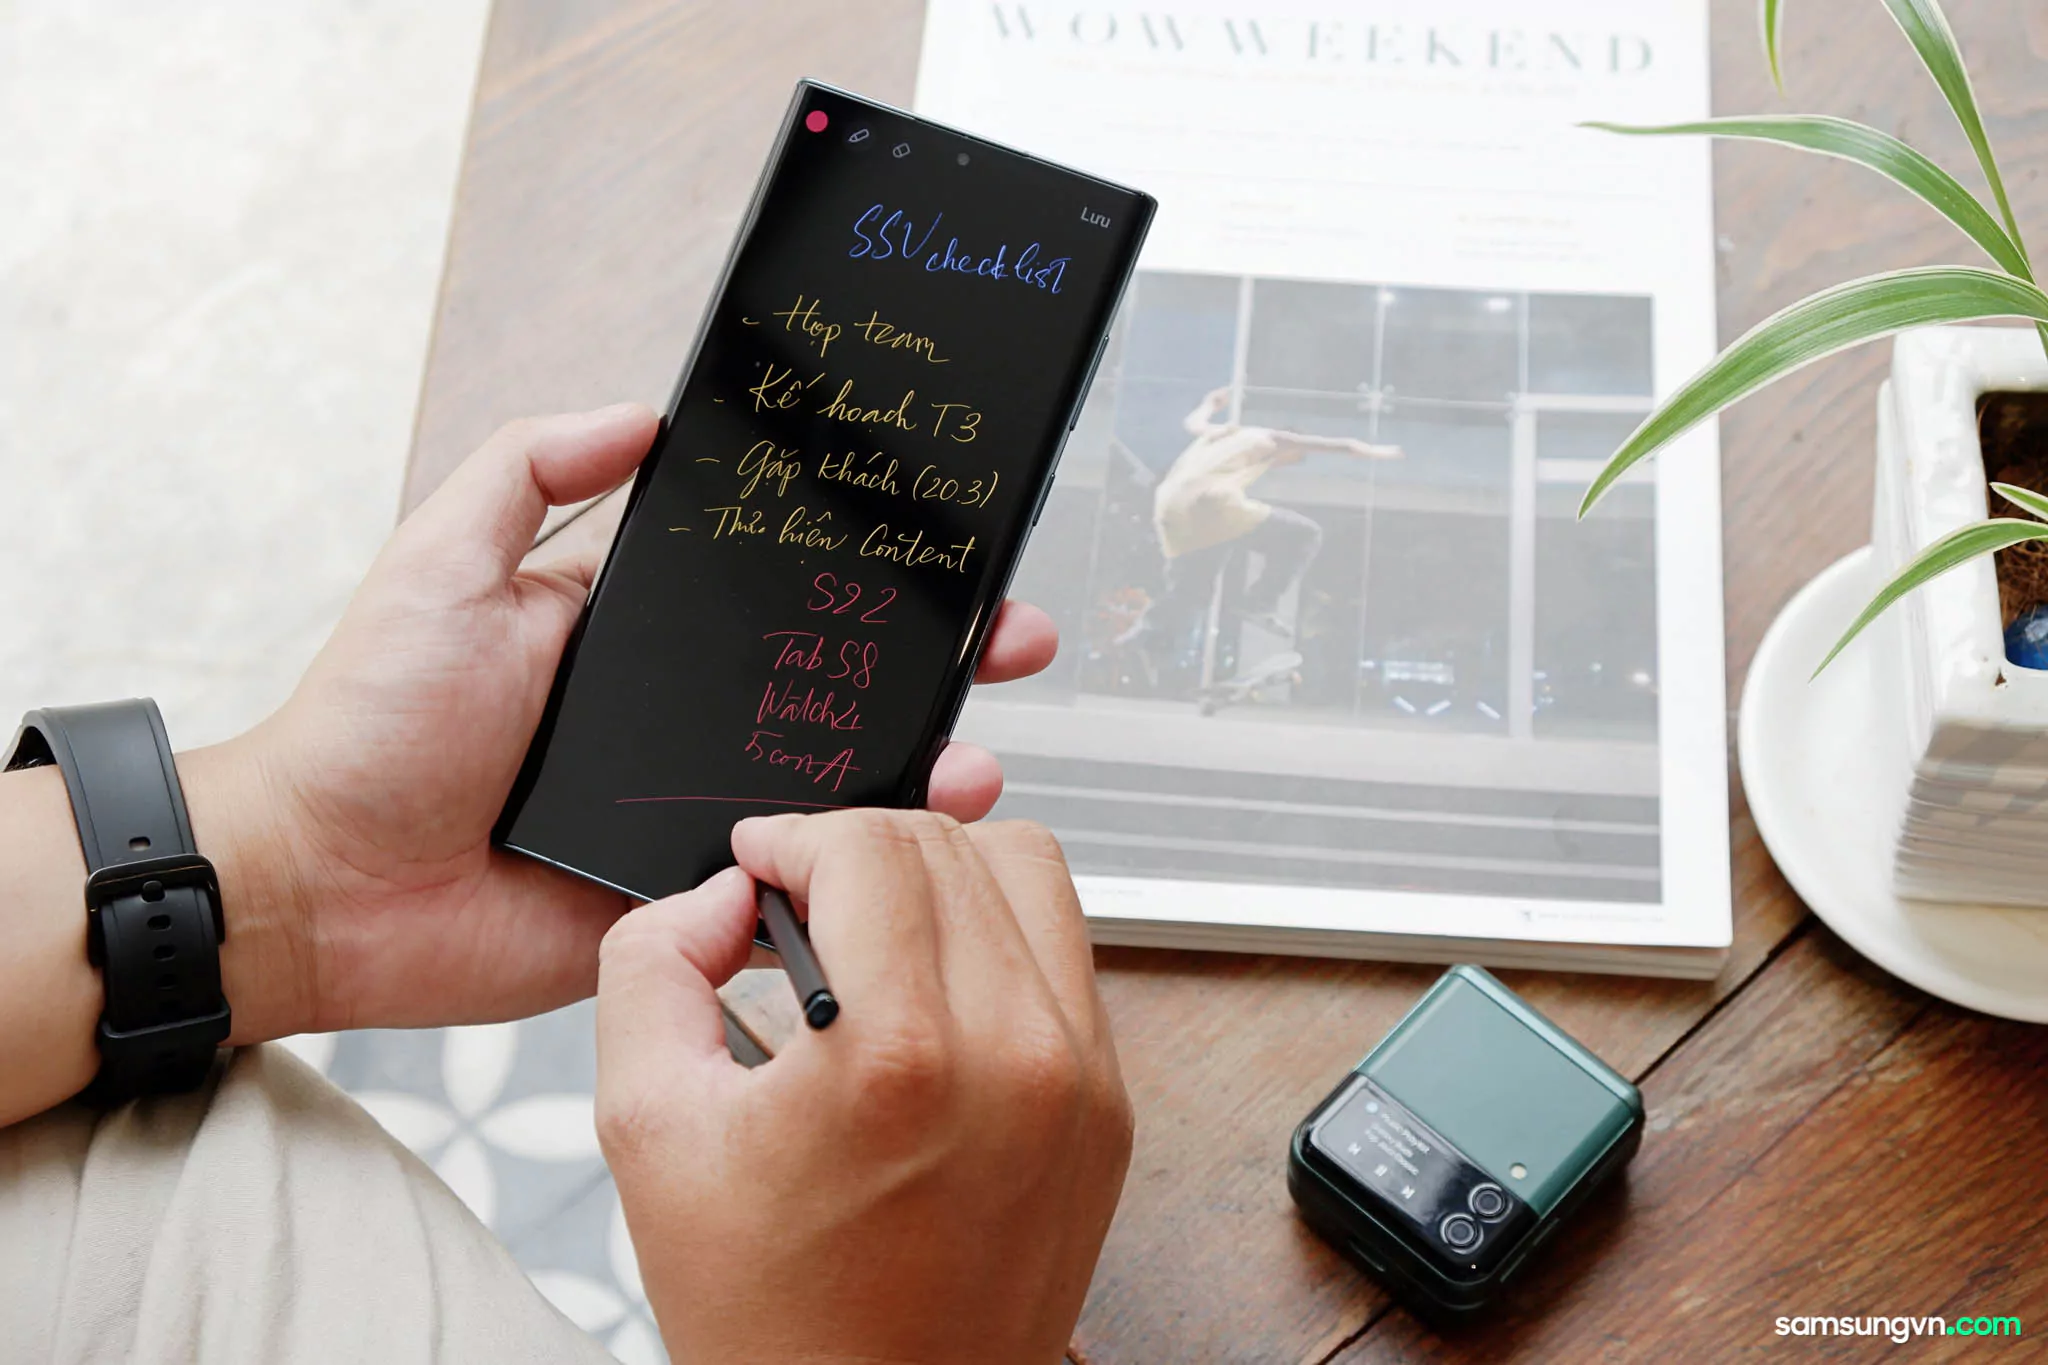 WOWWEEKEND
Lưu
SSV checklist
- Họp team
- Kế hoạch T3
- Gặp khách (20.3)
- Thực hiện Content
S22
Tab S8
Watch4
5 con A
samsungvn.com